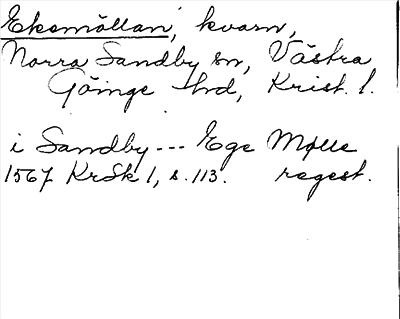 Eksmöllan, kvarn,
Norra Sandby sn, Västra
Göinge hd, Krist. l.
i Sandby --- Ege Mølle
1567 KrSk 1, s. 113. regest.